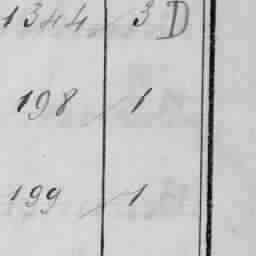 1344 3 D
198 1
199 1